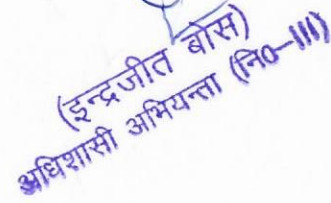 (इन्द्रजीत बोस)
अधिशासी अभियन्ता (नि०–III)